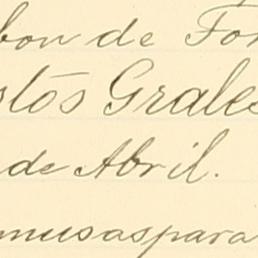 bon de For
stōs Grales
de Abril.
musaspara